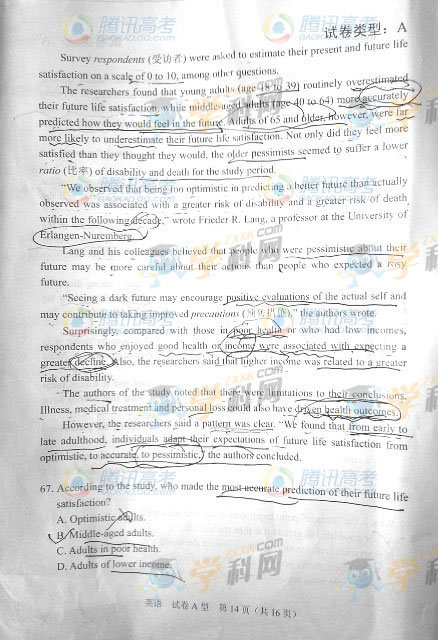 腾讯高考
GAOKAO.QQ.COM
腾讯高考
GAOKAO.QQ.COM
试卷类型：A
Survey respondents (受访者) were asked to estimate their present and future life
satisfaction on a scale of 0 to 10, among other questions.
The researchers found that young adults (age 18 to 39) routinely overestimated
their future life satisfaction, while middle-aged adults (age 40 to 64) more accurately
predicted how they would feel in the future. Adults of 65 and older, however, were far
more likely to underestimate their future life satisfaction. Not only did they feel more
satisfied than they thought they would, the older pessimists seemed to suffer a lower
ratio (比率) of disability and death for the study period.
"We observed that being too optimistic in predicting a better future than actually
observed was associated with a greater risk of disability and a greater risk of death
within the following decade," wrote Frieder R. Lang, a professor at the University of
Erlangen-Nuremberg.
Lang and his colleagues believed that people who were pessimistic about their
future may be more careful about their actions than people who expected a rosy
future.
"Seeing a dark future may encourage positive evaluations of the actual self and
may contribute to taking improved precautions (预防措施)," the authors wrote.
Surprisingly, compared with those in poor health or who had low incomes,
respondents who enjoyed good health or income were associated with expecting a
greater decline. Also, the researchers said that higher income was related to a greater
risk of disability.
The authors of the study noted that there were limitations to their conclusions.
Illness, medical treatment and personal loss could also have driven health outcomes.
However, the researchers said a pattern was clear. "We found that from early to
late adulthood, individuals adapt their expectations of future life satisfaction from
optimistic, to accurate, to pessimistic," the authors concluded.
67. According to the study, who made the most accurate prediction of their future life
satisfaction?
A. Optimistic adults.
B. Middle-aged adults.
C. Adults in poor health.
D. Adults of lower income.
英语 试卷A型 第14页（共16页）